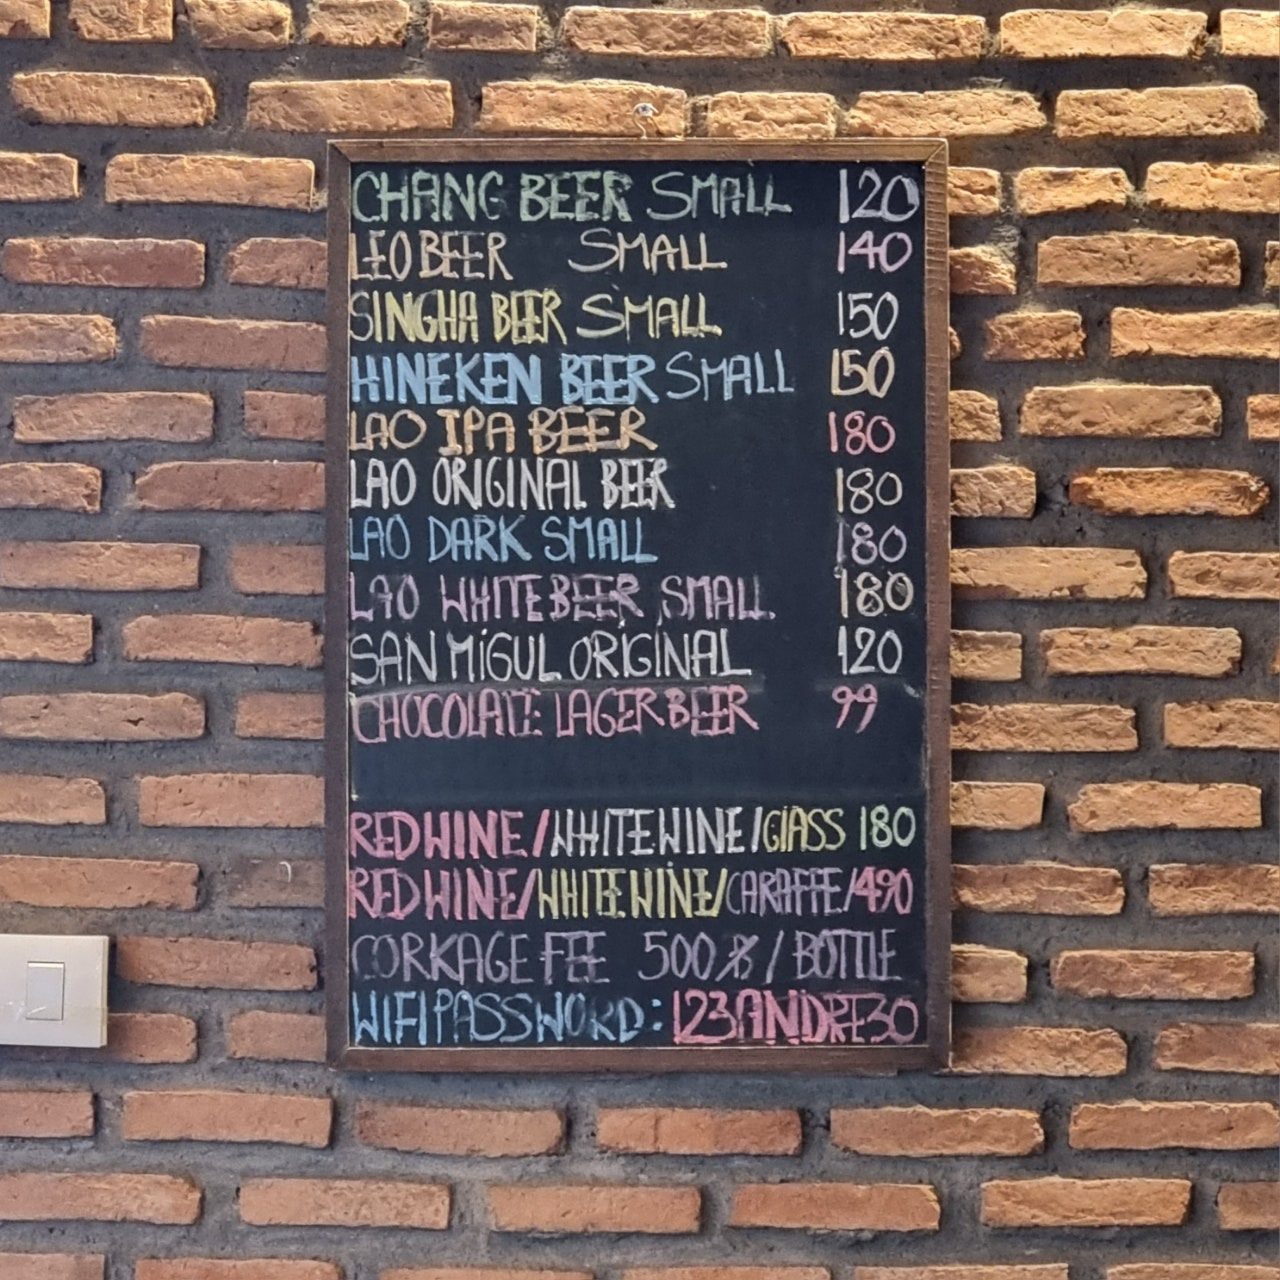 CHANG BEER SMALL 120
LEO BEER SMALL 140
SINGHA BEER SMALL 150
HINEKEN BEER SMALL 150
LAO IPA BEER 180
LAO ORIGINAL BEER 180
LAO DARK SMALL 180
LAO WHITE BEER SMALL 180
SAN MiGUL ORIGINAL 120
CHOCOLATE LAGER BEER 99
RED WINE/WHITE WINE/GlASS 180
RED WINE/WHITE WINE/CARAFFE/490
CORKAGE FEE 500 ฿ / BOTTLE
WIFI PASSWORD: 123ANDRE30